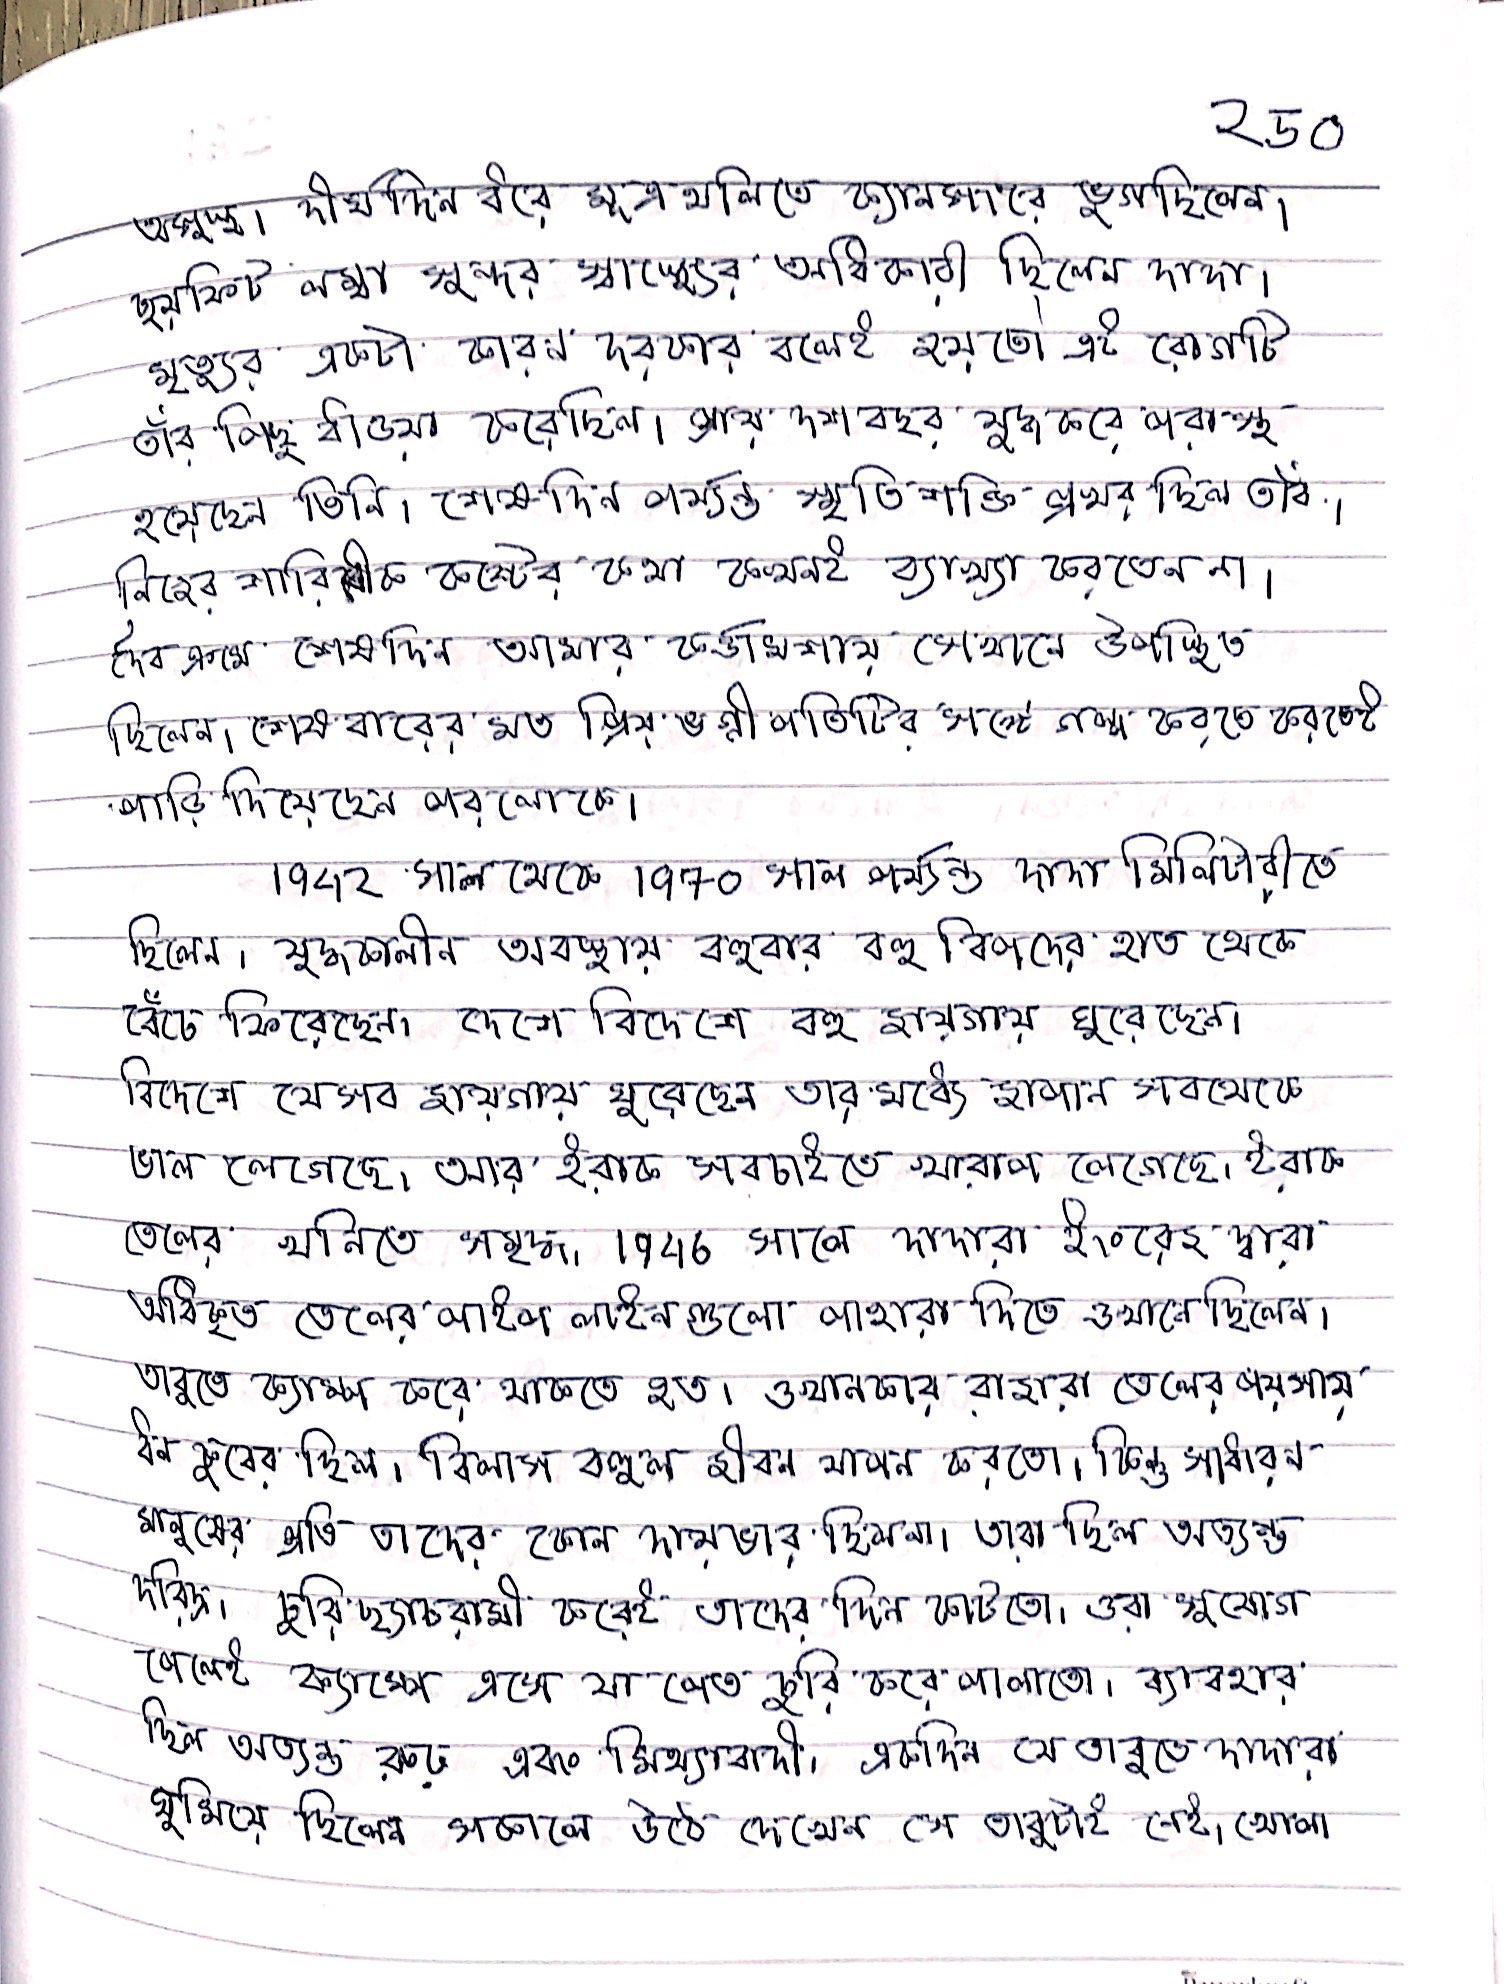 ২৬০
অসুস্থ। দীর্ঘদিন ধরে মূত্রথলিতে ক্যানসারে ভুগছিলেন।
ছয়ফিট লম্বা সুন্দর স্বাস্থ্যের অধিকারী ছিলেন দাদা।
মৃত্যুর একটা কারন দরকার বলেই হয়তো এই রোগটি
তাঁর পিছু ধাওয়া করেছিল। প্রায় দশ বছর যুদ্ধ করে পরাস্থ
হয়েছেন তিনি। শেষদিন পর্য্যন্ত স্মৃতি শক্তি প্রখর ছিল তাঁর।
নিজের শারিরীক কষ্টের কথা কখনই ব্যাখ্যা করতেন না।
দৈব ক্রমে শেষদিন আমার কর্ত্তামশায় সেখানে উপস্থিত
ছিলেন। শেষ বারের মত প্রিয় ভগ্নীপতিটির সঙ্গে গল্প করতে করতেই
পাড়ি দিয়েছেন পরলোকে।
1942 সাল থেকে 1970 সাল পর্য্যন্ত দাদা মিলিটারীতে
ছিলেন। যুদ্ধকালীন অবস্থায় বহুবার বহু বিপদের হাত থেকে
বেঁচে ফিরেছেন। দেশে বিদেশে বহু জায়গায় ঘুরেছেন।
বিদেশে যেসব জায়গায় ঘুরেছেন তার মধ্যে জাপান সবথেকে
ভাল লেগেছে। আর ইরাক সবচাইতে খারাপ লেগেছে। ইরাক
তেলের খনিতে সমৃদ্ধ। 1946 সালে দাদারা ইংরেজ দ্বারা
অধিকৃত তেলের পাইপ লাইনগুলো পাহারা দিতে ওখানে ছিলেন।
তাবুতে ক্যাম্প করে থাকতে হত। ওখানকার রাজারা তেলের পয়সায়
ধন কুবের ছিল। বিলাস বহুল জীবন যাপন করতো। কিন্তু সাধারন
মানুষের প্রতি তাদের কোন দায়ভার ছিলনা। তারা ছিল অত্যন্ত
দরিদ্র। চুরি ছ্যাচরামী করেই তাদের দিন কাটতো। ওরা সুযোগ
পেলেই ক্যাম্পে এসে যা পেত চুরি করে পালাতো। ব্যাবহার
ছিল অত্যন্ত রুঢ় এবং মিথ্যাবাদী। একদিন যে তাবুতে দাদারা
ঘুমিয়ে ছিলেন সকালে উঠে দেখেন সে তাবুটাই নেই। খোলা